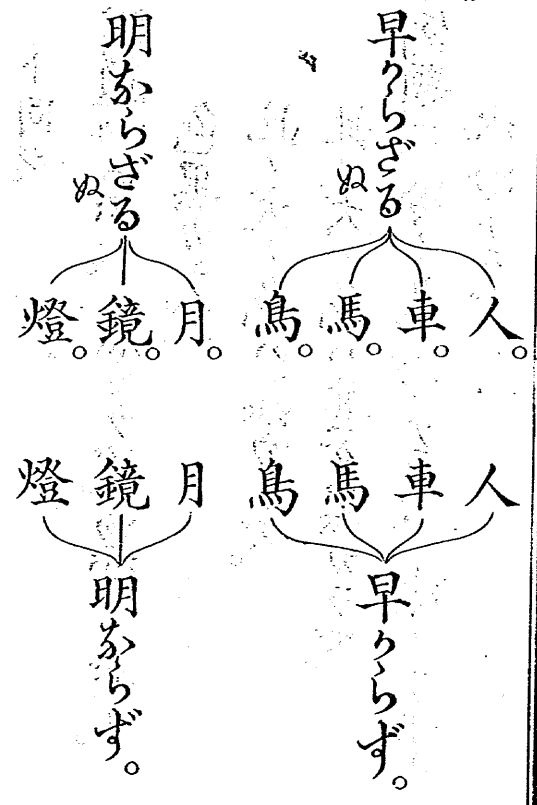 早からざる
ぬ
人。
車。
馬。
鳥。
明ならざる
ぬ
月。
鏡。
燈。
人
車
馬
鳥
早からず。
月
鏡
燈
明ならず。